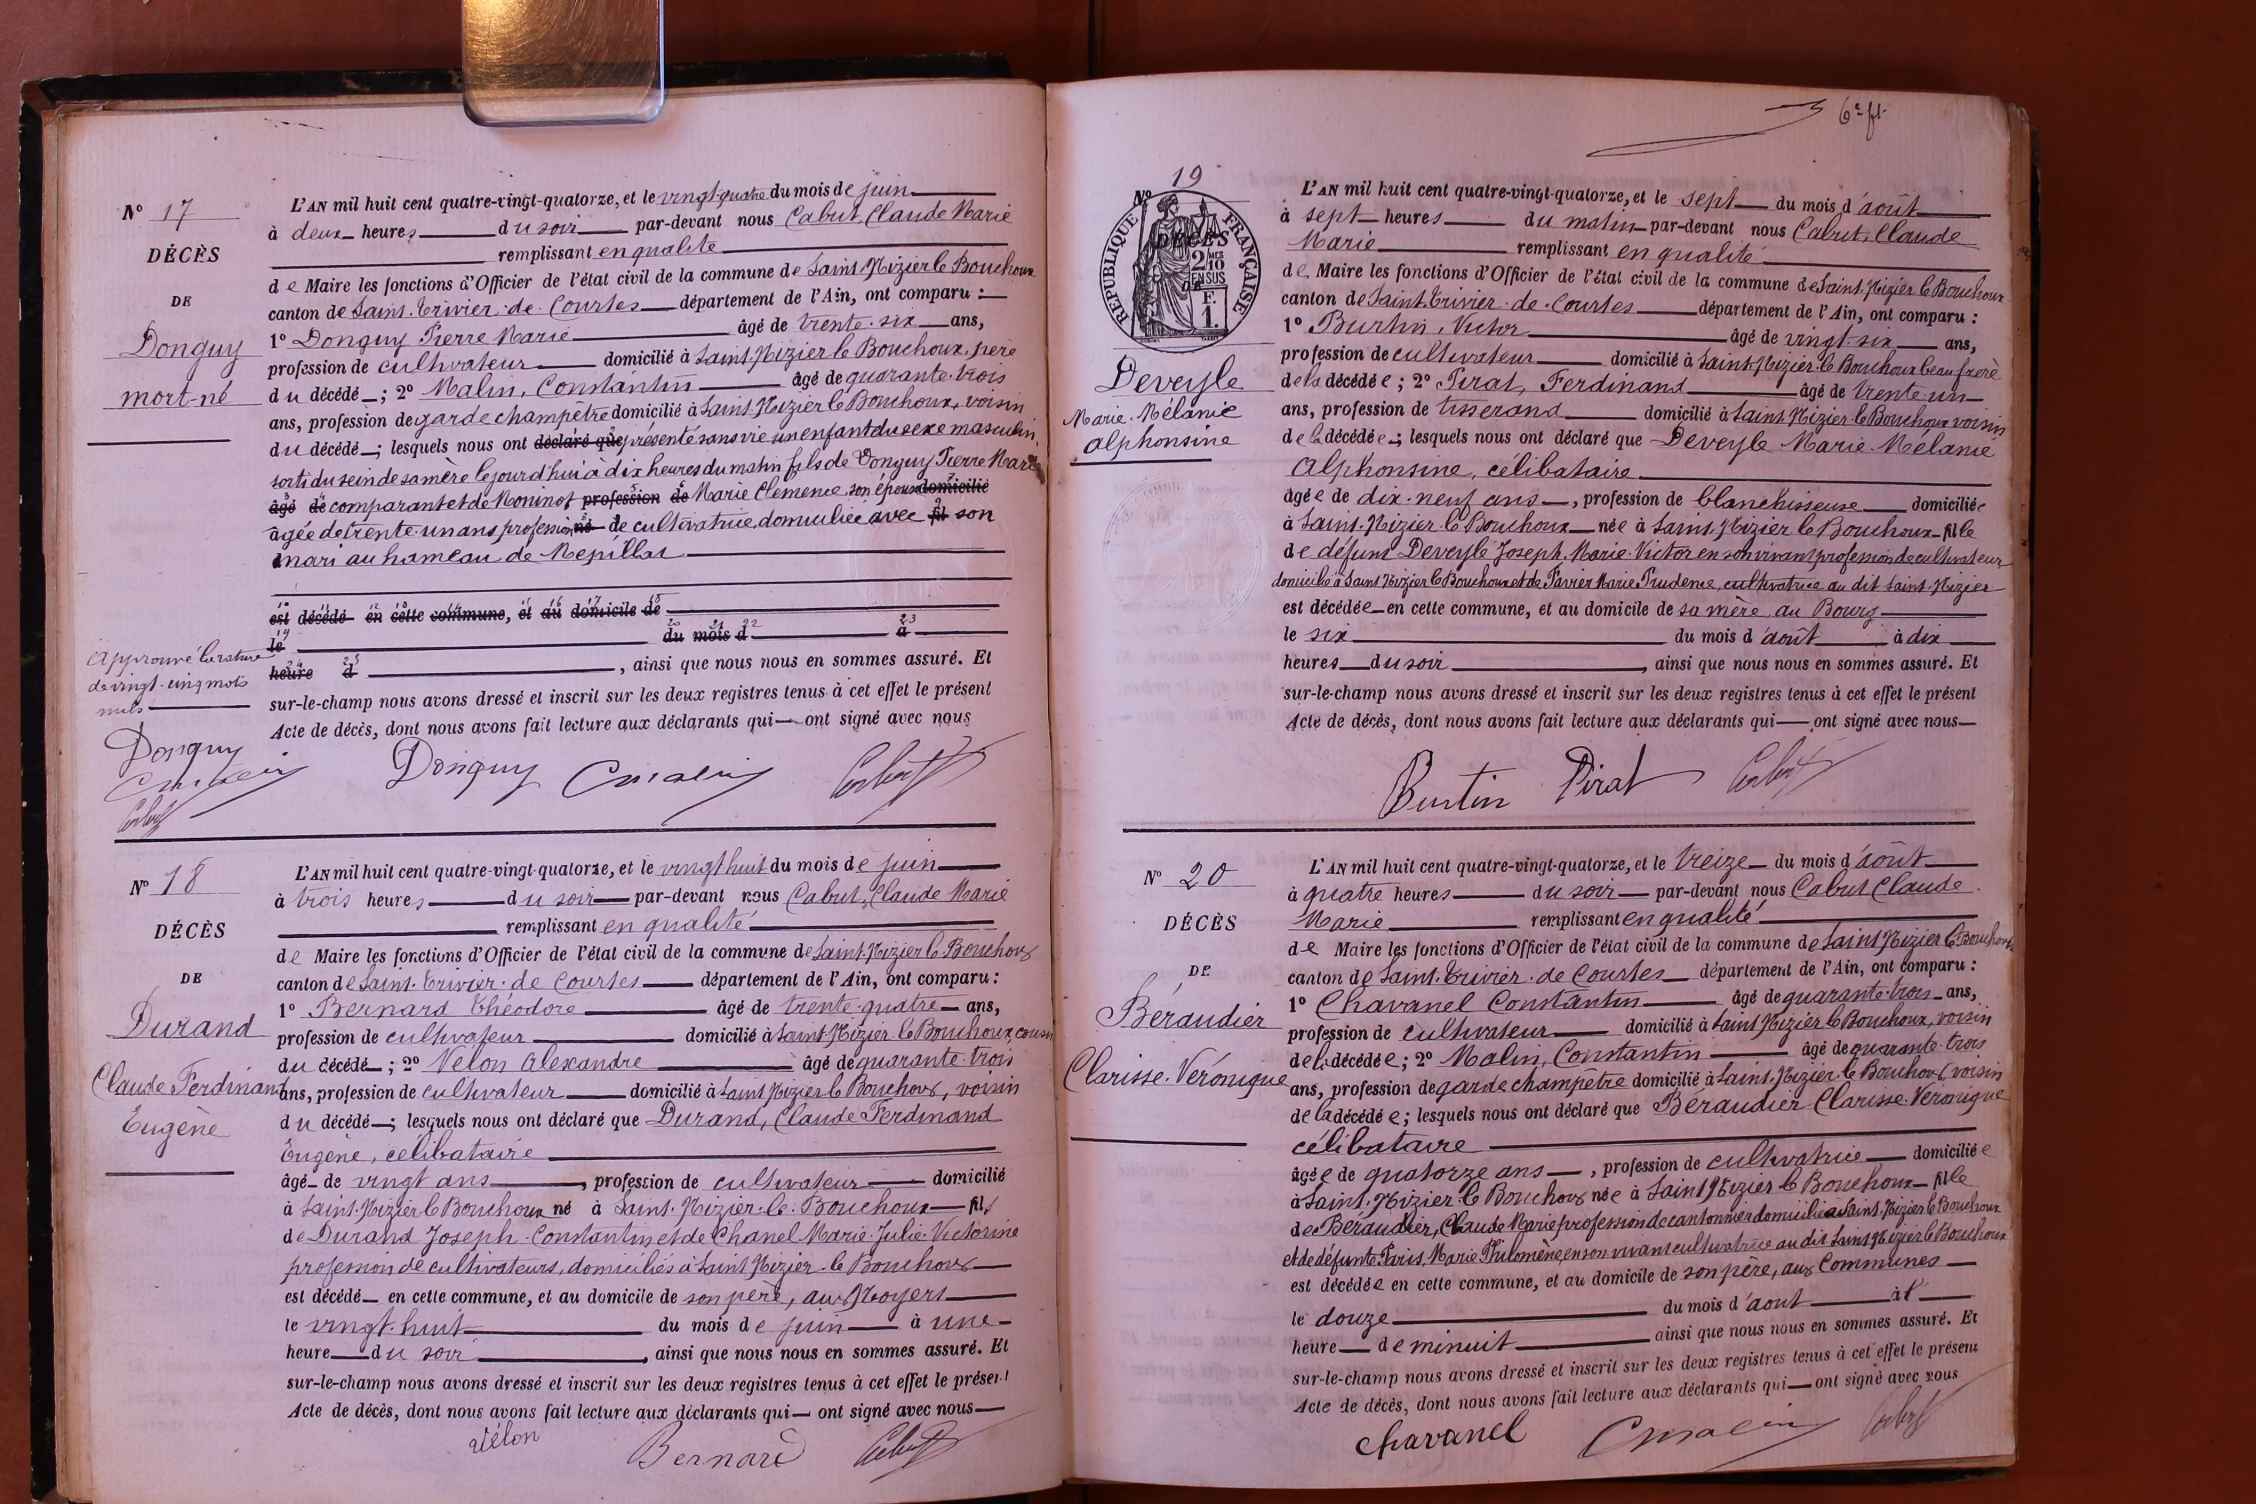 Nº 17
DÉCÈS
DE
Donguy
mort-né
L'AN mil huit cent quatre-vingt-quatorze, et le vingt-quatre du mois de juin
à deux heures du soir par-devant nous Cabut, Claude Marie
remplissant en qualité
de Maire les fonctions d'Officier de l'état civil de la commune de Saint-Nizier le Bouchoux
canton de Saint-Trivier-de-Courtes département de l'Ain, ont comparu :
1º Donguy Pierre Marie âgé de trente-six ans,
profession de cultivateur domicilié à Saint-Nizier le Bouchoux, père
du décédé ; 2º Malin, Constantin âgé de quarante-trois
ans, profession de garde champêtre domicilié à Saint-Nizier le Bouchoux, voisin
du décédé ; lesquels nous ont déclaré que présenté sans vie un enfant du sexe masculin,
sorti du sein de sa mère le jourd'hui à dix heures du matin fils de Donguy Pierre Marie
âgé de comparant et de Moninot profession de Marie Clémence, son épouse domicilié
âgée de trente-un ans profession né de cultivatrice, domiciliée avec fil son
mari au hameau de Mépillat
est décédé en cette commune, et au domicile de
le du mois d à
heure d , ainsi que nous nous en sommes assuré. Et
sur-le-champ nous avons dressé et inscrit sur les deux registres tenus à cet effet le présent
Acte de décès, dont nous avons fait lecture aux déclarants qui ont signé avec nous
Approuvé la rature
de vingt-cinq mots
nuls
Donguy
C malin
Cabut
Donguy C malin Cabut
Nº 18
DÉCÈS
DE
Durand
Claude Ferdinand
Eugène
L'AN mil huit cent quatre-vingt-quatorze, et le vingt huit du mois de juin
à trois heures du soir par-devant nous Cabut, Claude Marie
remplissant en qualité
de Maire les fonctions d'Officier de l'état civil de la commune de Saint-Nizier le Bouchoux
canton de Saint-Trivier-de Courtes département de l'Ain, ont comparu :
1º Bernard Théodore âgé de trente-quatre ans,
profession de cultivateur domicilié à Saint-Nizier le Bouchoux, cousin
du décédé ; 2º Vélon Alexandre âgé de quarante-trois
ans, profession de cultivateur domicilié à Saint Nizier le Bouchoux, voisin
du décédé ; lesquels nous ont déclaré que Durand, Claude Ferdinand
Eugène, célibataire
âgé de vingt ans , profession de cultivateur domicilié
à Saint-Nizier le Bouchoux né à Saint-Nizier-le-Bouchoux fils
de Durand Joseph-Constantin et de Chanel Marie-Julie-Victorine
profession de cultivateurs, domiciliés à Saint Nizier-le Bouchoux
est décédé en cette commune, et au domicile de son père, aux Noyers
le vingt-huit du mois de juin à une
heure du soir , ainsi que nous nous en sommes assuré. Et
sur-le-champ nous avons dressé et inscrit sur les deux registres tenus à cet effet le présent
Acte de décès, dont nous avons fait lecture aux déclarants qui ont signé avec nous
Vélon Bernard Cabut
6e ft
19
Nº
RÉPUBLIQUE FRANÇAISE
DÉCÈS
2/10 MES
EN SUS
DE
F.
1.
Deveyle
Marie-Mélanie
Alphonsine
L'AN mil huit cent quatre-vingt-quatorze, et le sept du mois d'août
à sept heures du matin par-devant nous Cabut, Claude
Marie remplissant en qualité
de Maire les fonctions d'Officier de l'état civil de la commune de Saint-Nizier le Bouchoux
canton de Saint-Trivier-de-Courtes département de l'Ain, ont comparu :
1º Burtin, Victor âgé de vingt-six ans,
profession de cultivateur domicilié à Saint-Nizier-le Bouchoux beau frère
de la décédée ; 2º Pirat, Ferdinand âgé de trente-un
ans, profession de tisserand domicilié à Saint-Nizier le Bouchoux voisin
de la décédée ; lesquels nous ont déclaré que Deveyle Marie-Mélanie
Alphonsine, célibataire
âgée de dix-neuf ans , profession de blanchisseuse domiciliée
à Saint-Nizier le Bouchoux née à Saint-Nizier le Bouchoux fille
de défunt Deveyle Joseph-Marie-Victor en son vivant profession de cultivateur
domicilié à Saint Nizier le Bouchoux et de Pavier Marie Prudence, cultivatrice au dit Saint-Nizier
est décédée en cette commune, et au domicile de sa mère, au Bourg
le six du mois d'août à dix
heures du soir , ainsi que nous nous en sommes assuré. Et
sur-le-champ nous avons dressé et inscrit sur les deux registres tenus à cet effet le présent
Acte de décès, dont nous avons fait lecture aux déclarants qui ont signé avec nous
Burtin Pirat Cabut
Nº 20
DÉCÈS
DE
Béraudier
Clarisse-Véronique
L'AN mil huit cent quatre-vingt-quatorze, et le treize du mois d'août
à quatre heures du soir par-devant nous Cabut Claude
Marie remplissant en qualité
de Maire les fonctions d'Officier de l'état civil de la commune de Saint Nizier le Bouchoux
canton de Saint-Trivier-de Courtes département de l'Ain, ont comparu :
1º Chavanel Constantin âgé de quarante-trois ans,
profession de cultivateur domicilié à Saint Nizier le Bouchoux, voisin
de la décédée ; 2º Malin, Constantin âgé de quarante-trois
ans, profession de garde champêtre domicilié à Saint-Nizier-le Bouchoux, voisin
de la décédée ; lesquels nous ont déclaré que Béraudier Clarisse-Véronique
célibataire
âgée de quatorze ans , profession de cultivatrice domiciliée
à Saint-Nizier le Bouchoux née à Saint Nizier le Bouchoux fille
de Béraudier, Claude Marie profession de cantonnier domicilié à Saint-Nizier le Bouchoux
et de défunte Paris, Marie Philomène, en son vivant cultivatrice au dit Saint Nizier le Bouchoux
est décédée en cette commune, et au domicile de son père, aux Communes
le douze du mois d'août à l'
heure de minuit ainsi que nous nous en sommes assuré. Et
sur-le-champ nous avons dressé et inscrit sur les deux registres tenus à cet effet le présent
Acte de décès, dont nous avons fait lecture aux déclarants qui ont signé avec nous
Chavanel C malin Cabut